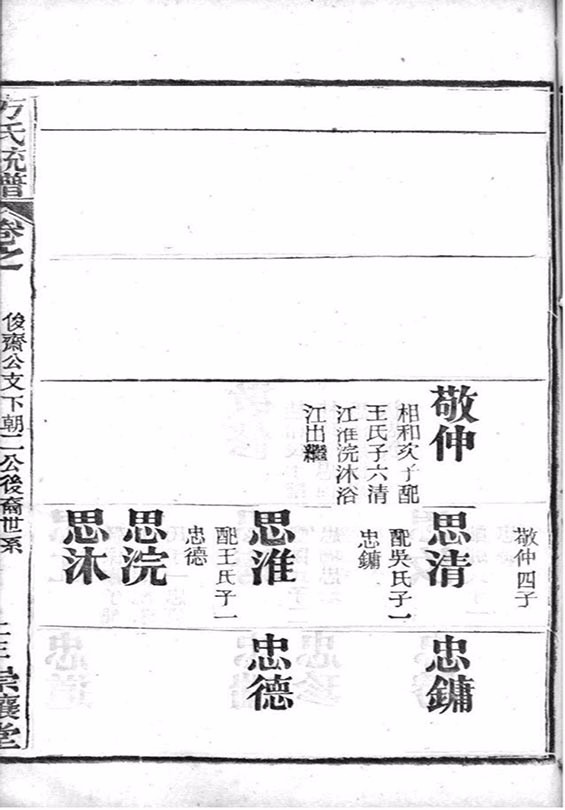 敬仲
相和次子配
王氏子六清
江淮浣沐浴
江出繼
敬仲四子
思清
配吳氏子一
忠鏞
思淮
配王氏子一
忠德
思浣
思沐
忠鏞
忠德
方氏統譜
卷之
俊齋公支下朝二公後裔世系
崇讓堂